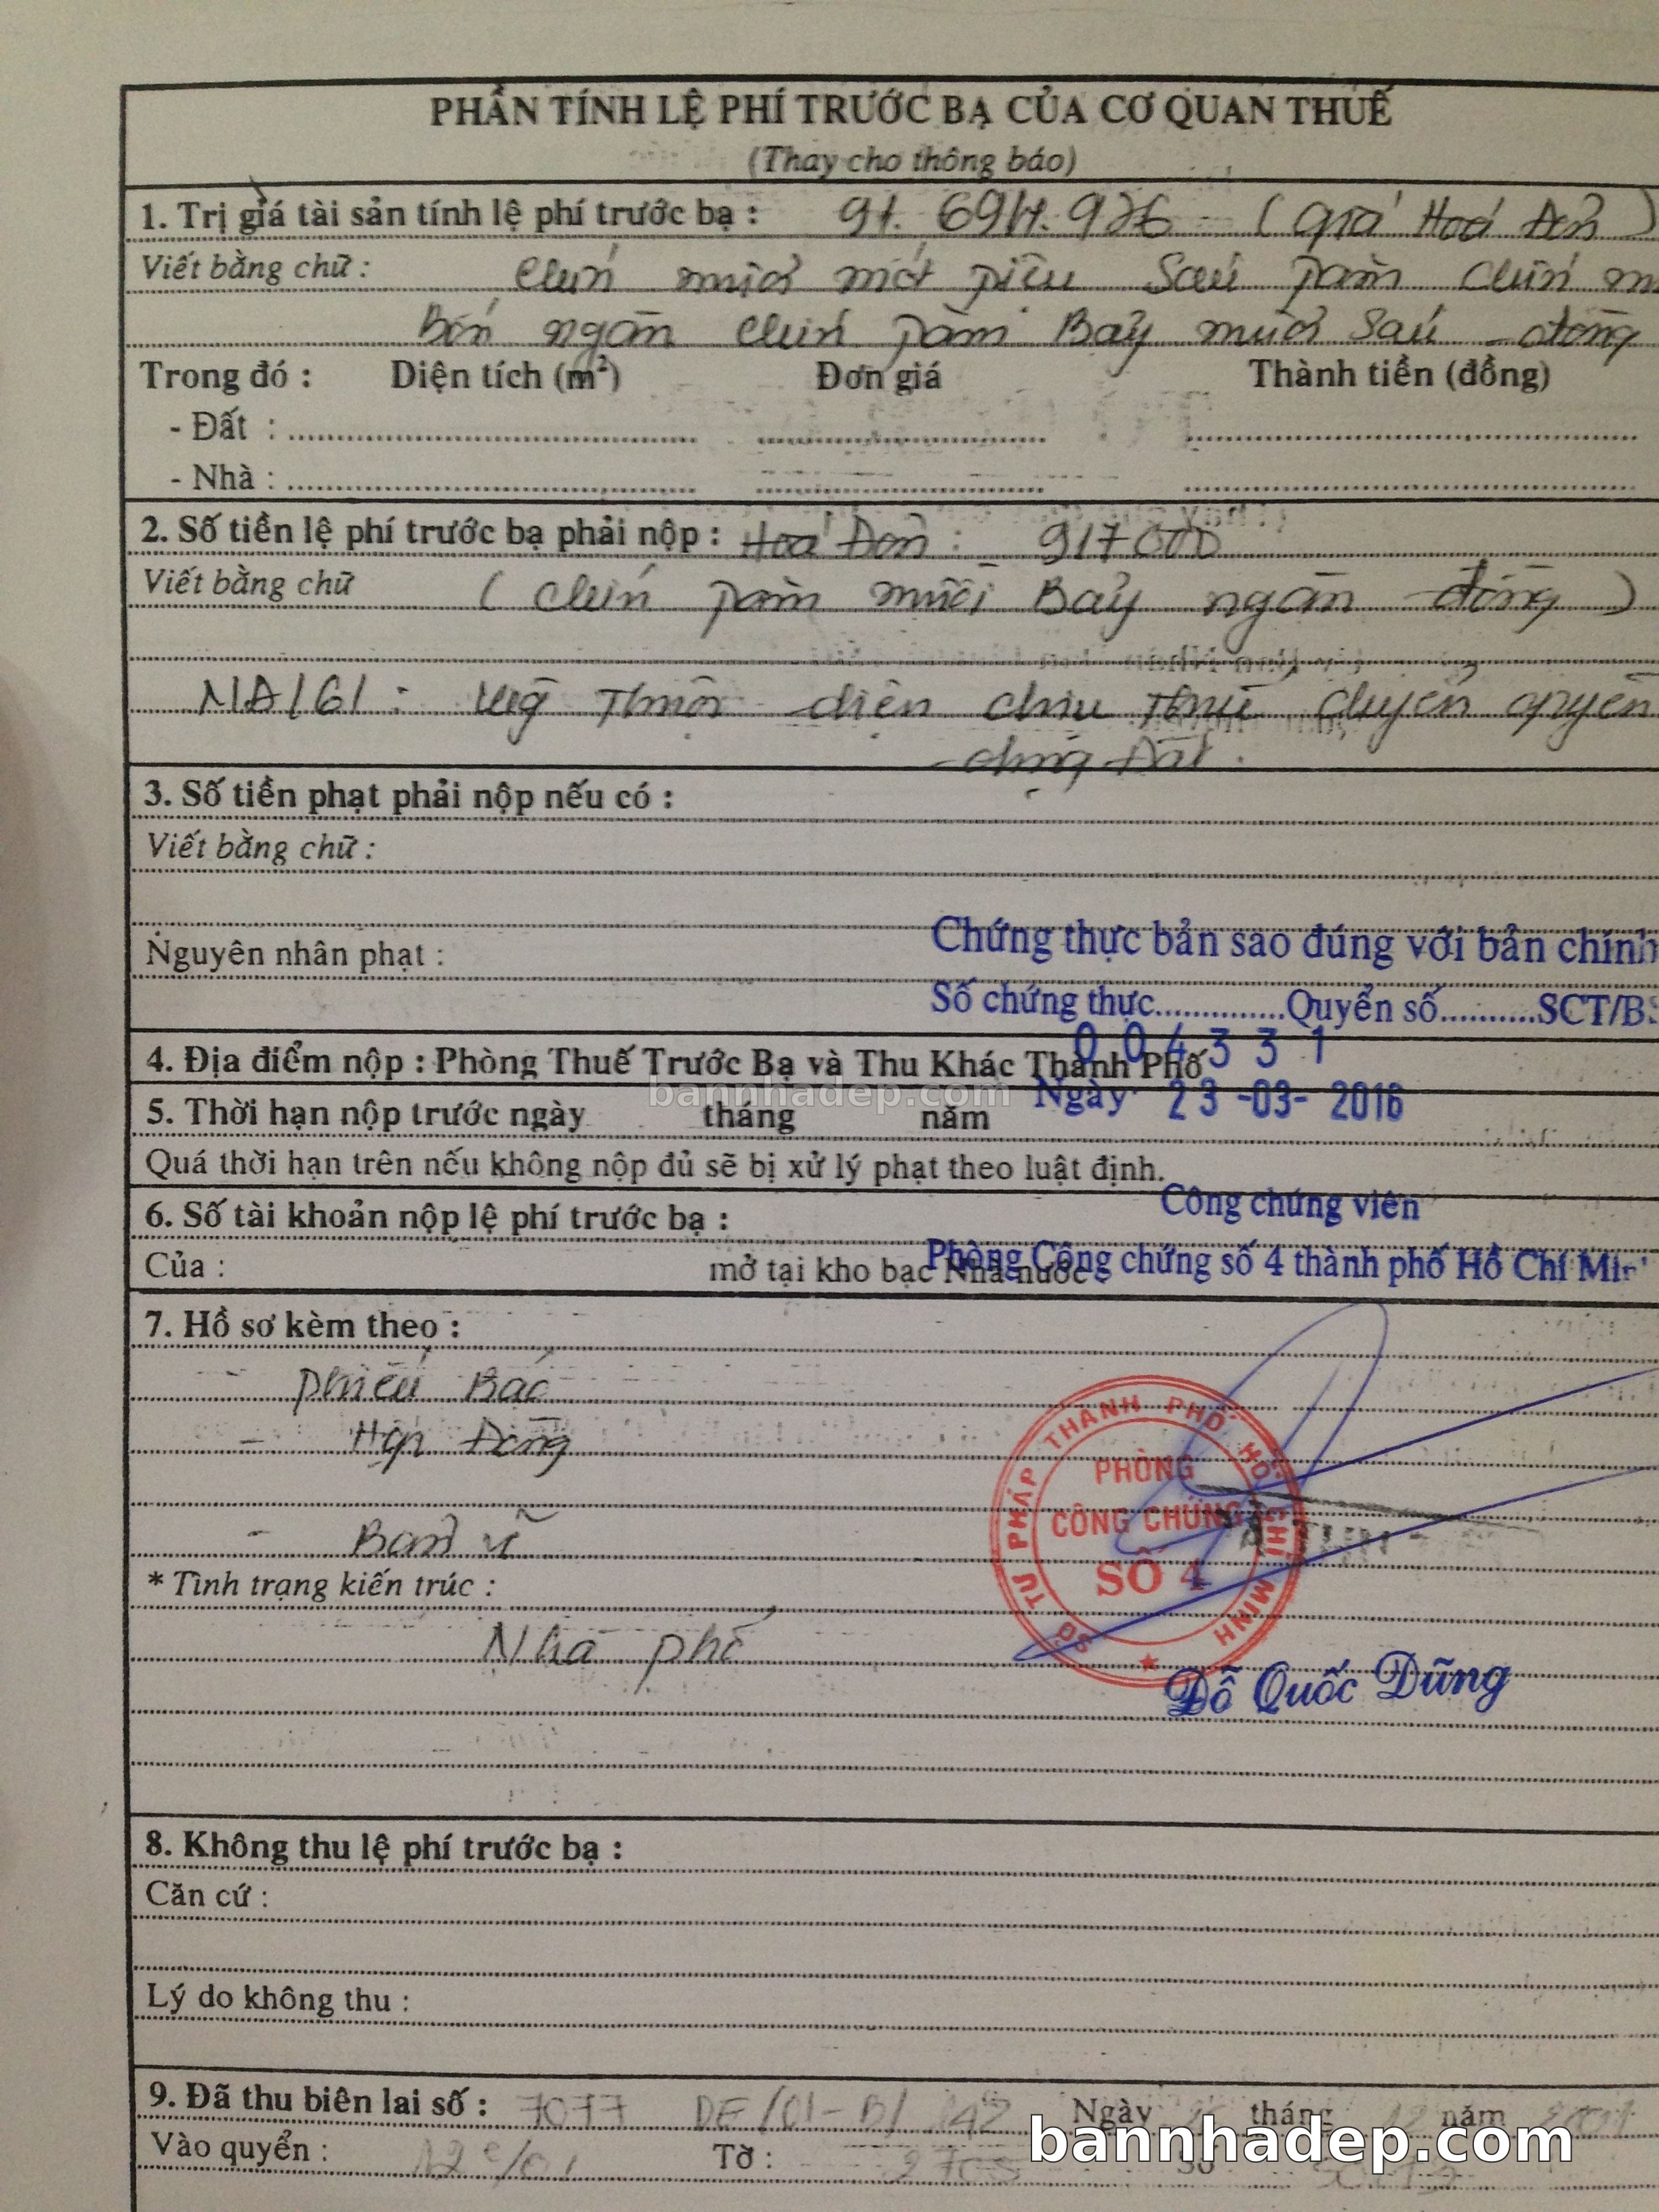 PHẦN TÍNH LỆ PHÍ TRƯỚC BẠ CỦA CƠ QUAN THUẾ
(Thay cho thông báo)
1. Trị giá tài sản tính lệ phí trước bạ : 91.694.976 - ( giá Hoá Đơn )
Viết bằng chữ : Chín mươi mốt triệu Sáu trăm chín
Bốn ngàn chín trăm Bảy mươi Sáu đồng
Trong đó : Diện tích (m²) Đơn giá Thành tiền (đồng)
- Đất :
- Nhà :
2. Số tiền lệ phí trước bạ phải nộp : Hoá Đơn : 917000
Viết bằng chữ ( Chín trăm mười Bảy ngàn đồng )
thuộc diện chịu thuế chuyển quyền
dụng Đất .
3. Số tiền phạt phải nộp nếu có :
Viết bằng chữ :
Nguyên nhân phạt :
Chứng thực bản sao đúng với bản chính
Số chứng thực..............Quyển số..........SCT/BS
004331
4. Địa điểm nộp : Phòng Thuế Trước Bạ và Thu Khác Thành Phố
bannhadep.com
Ngày 23 -03- 2016
5. Thời hạn nộp trước ngày tháng năm
Quá thời hạn trên nếu không nộp đủ sẽ bị xử lý phạt theo luật định.
Công chứng viên
6. Số tài khoản nộp lệ phí trước bạ :
Phòng Công chứng số 4 thành phố Hồ Chí Minh
Của : mở tại kho bạc Nhà nước
7. Hồ sơ kèm theo :
- Phiếu Báo
- Hợp Đồng
- Bản vẽ
SỞ TƯ PHÁP THÀNH PHỐ HỒ CHÍ MINH
PHÒNG
CÔNG CHỨNG
SỐ 4
* Tình trạng kiến trúc :
Nhà phố
Đỗ Quốc Dũng
8. Không thu lệ phí trước bạ :
Căn cứ :
Lý do không thu :
9. Đã thu biên lai số : 7077 Ngày tháng 12 năm 2001
Vào quyển : Tờ : Số
bannhadep.com